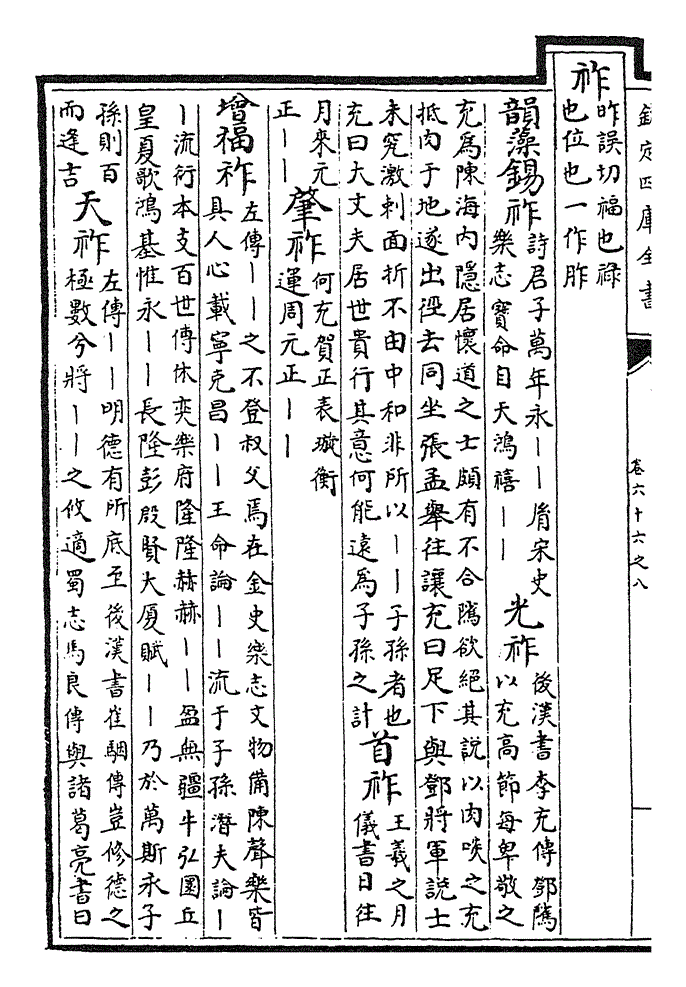 欽定四庫全書
卷六十六之八
祚
昨誤切福也祿
也位也一作胙
韻藻錫祚
詩君子萬年永丨丨胤宋史
樂志寶命自天鴻禧丨丨
光祚
後漢書李充傳鄧隲
以充高節每卑敬之
充爲陳海内隱居懷道之士頗有不合隲欲絕其說以肉啖之充
抵肉于地遂出徑去同坐張孟舉往讓充曰足下與鄧將軍說士
未究激刺面折不由中和非所以丨丨子孫者也
充曰大丈夫居世貴行其意何能遠爲子孫之計
首祚
王羲之月
儀書日往
月來元
正丨丨
肇祚
何充賀正表璇衡
運周元正丨丨
增福祚
左傳丨丨之不登叔父焉在金史樂志文物備陳聲樂皆
具人心載寧克昌丨丨王命論丨丨流于子孫潛夫論丨
丨流行本支百世傅休奕樂府隆隆赫赫丨丨盈無疆牛弘圜丘
皇夏歌鴻基惟永丨丨長隆彭殷賢大厦賦丨丨乃於萬斯永子
孫則百
而逢吉
天祚
左傳丨丨明德有所底至後漢書崔駰傳豈修德之
極數兮將丨丨之攸適蜀志馬良傳與諸葛亮書曰